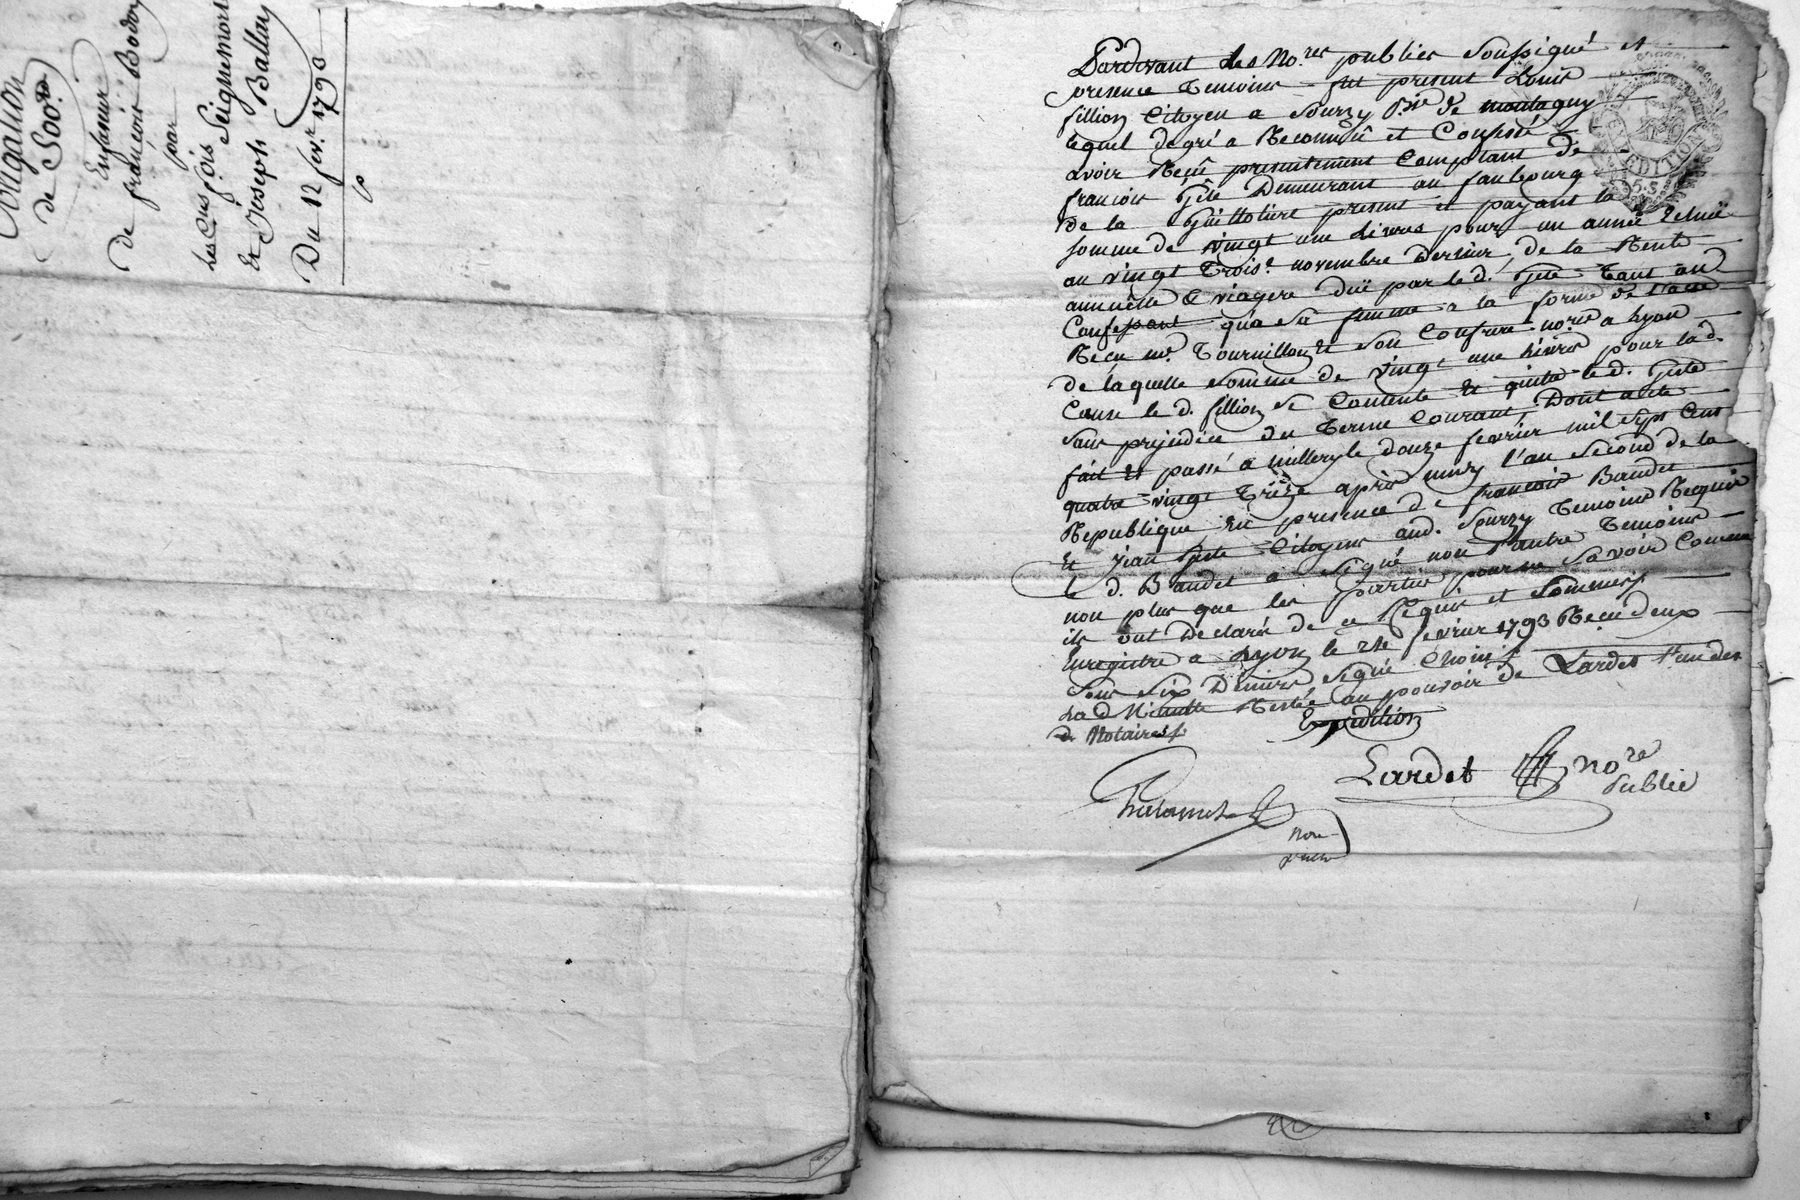 Obligation
de 500#
En faveur
de françois Bodoy
par
les Cns fçois Seignemort
Et Joseph Ballay
Du 12 fevr. 1793
Pardevant les No.res publics Soussigné et
presence Temoins fut present Louis
fillion Citoyen a Sourzy P.sse de montagny
lequel de gré a Reconnû et Confessé
avoir Reçû presentement Comptant de
francois Gête Demeurant au faubourg
de la Guillotiere present et payant la
somme de vingt une Livres pour un année Echuë
au vingt trois.e novembre dernier, de la Rente
annuelle & viagere duë par le d. Gete tant au d.
Confessant qu'a sa femme a la forme de l'acte
Reçu m.e Tournillon et son Confrere no.res a Lyon
de laquelle somme de vingt une Livres pour la d.
Cause le d. fillion se Contente et quitte le d. Gete
sans prejudice du terme Courant, Dont acte
fait et passé a millery le douze fevrier mil sept Cent
quatre vingt treize apres midy l'an second de la
Republique en presence de francois Baudet
Et Jean Citoyens aud. Sourzy Temoins Requis
le d. Baudet a signé non l'autre Temoins
non plus que les parties pour ne savoir Comme
ils ont declarés de ce Requis et Sommés
Enregistré a Lyon le 21e fevrier 1793 Reçu deux
Sous six Deniers signé Choin
La d. Minutte Restée au pouvoir de Lardet l'un des
d. Notaires
Expedition
Lardet no.re
Public
EXPEDITION
5. S